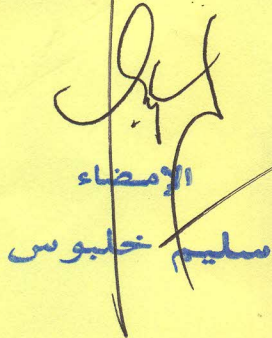 الإمضاء
سليم خلبوس